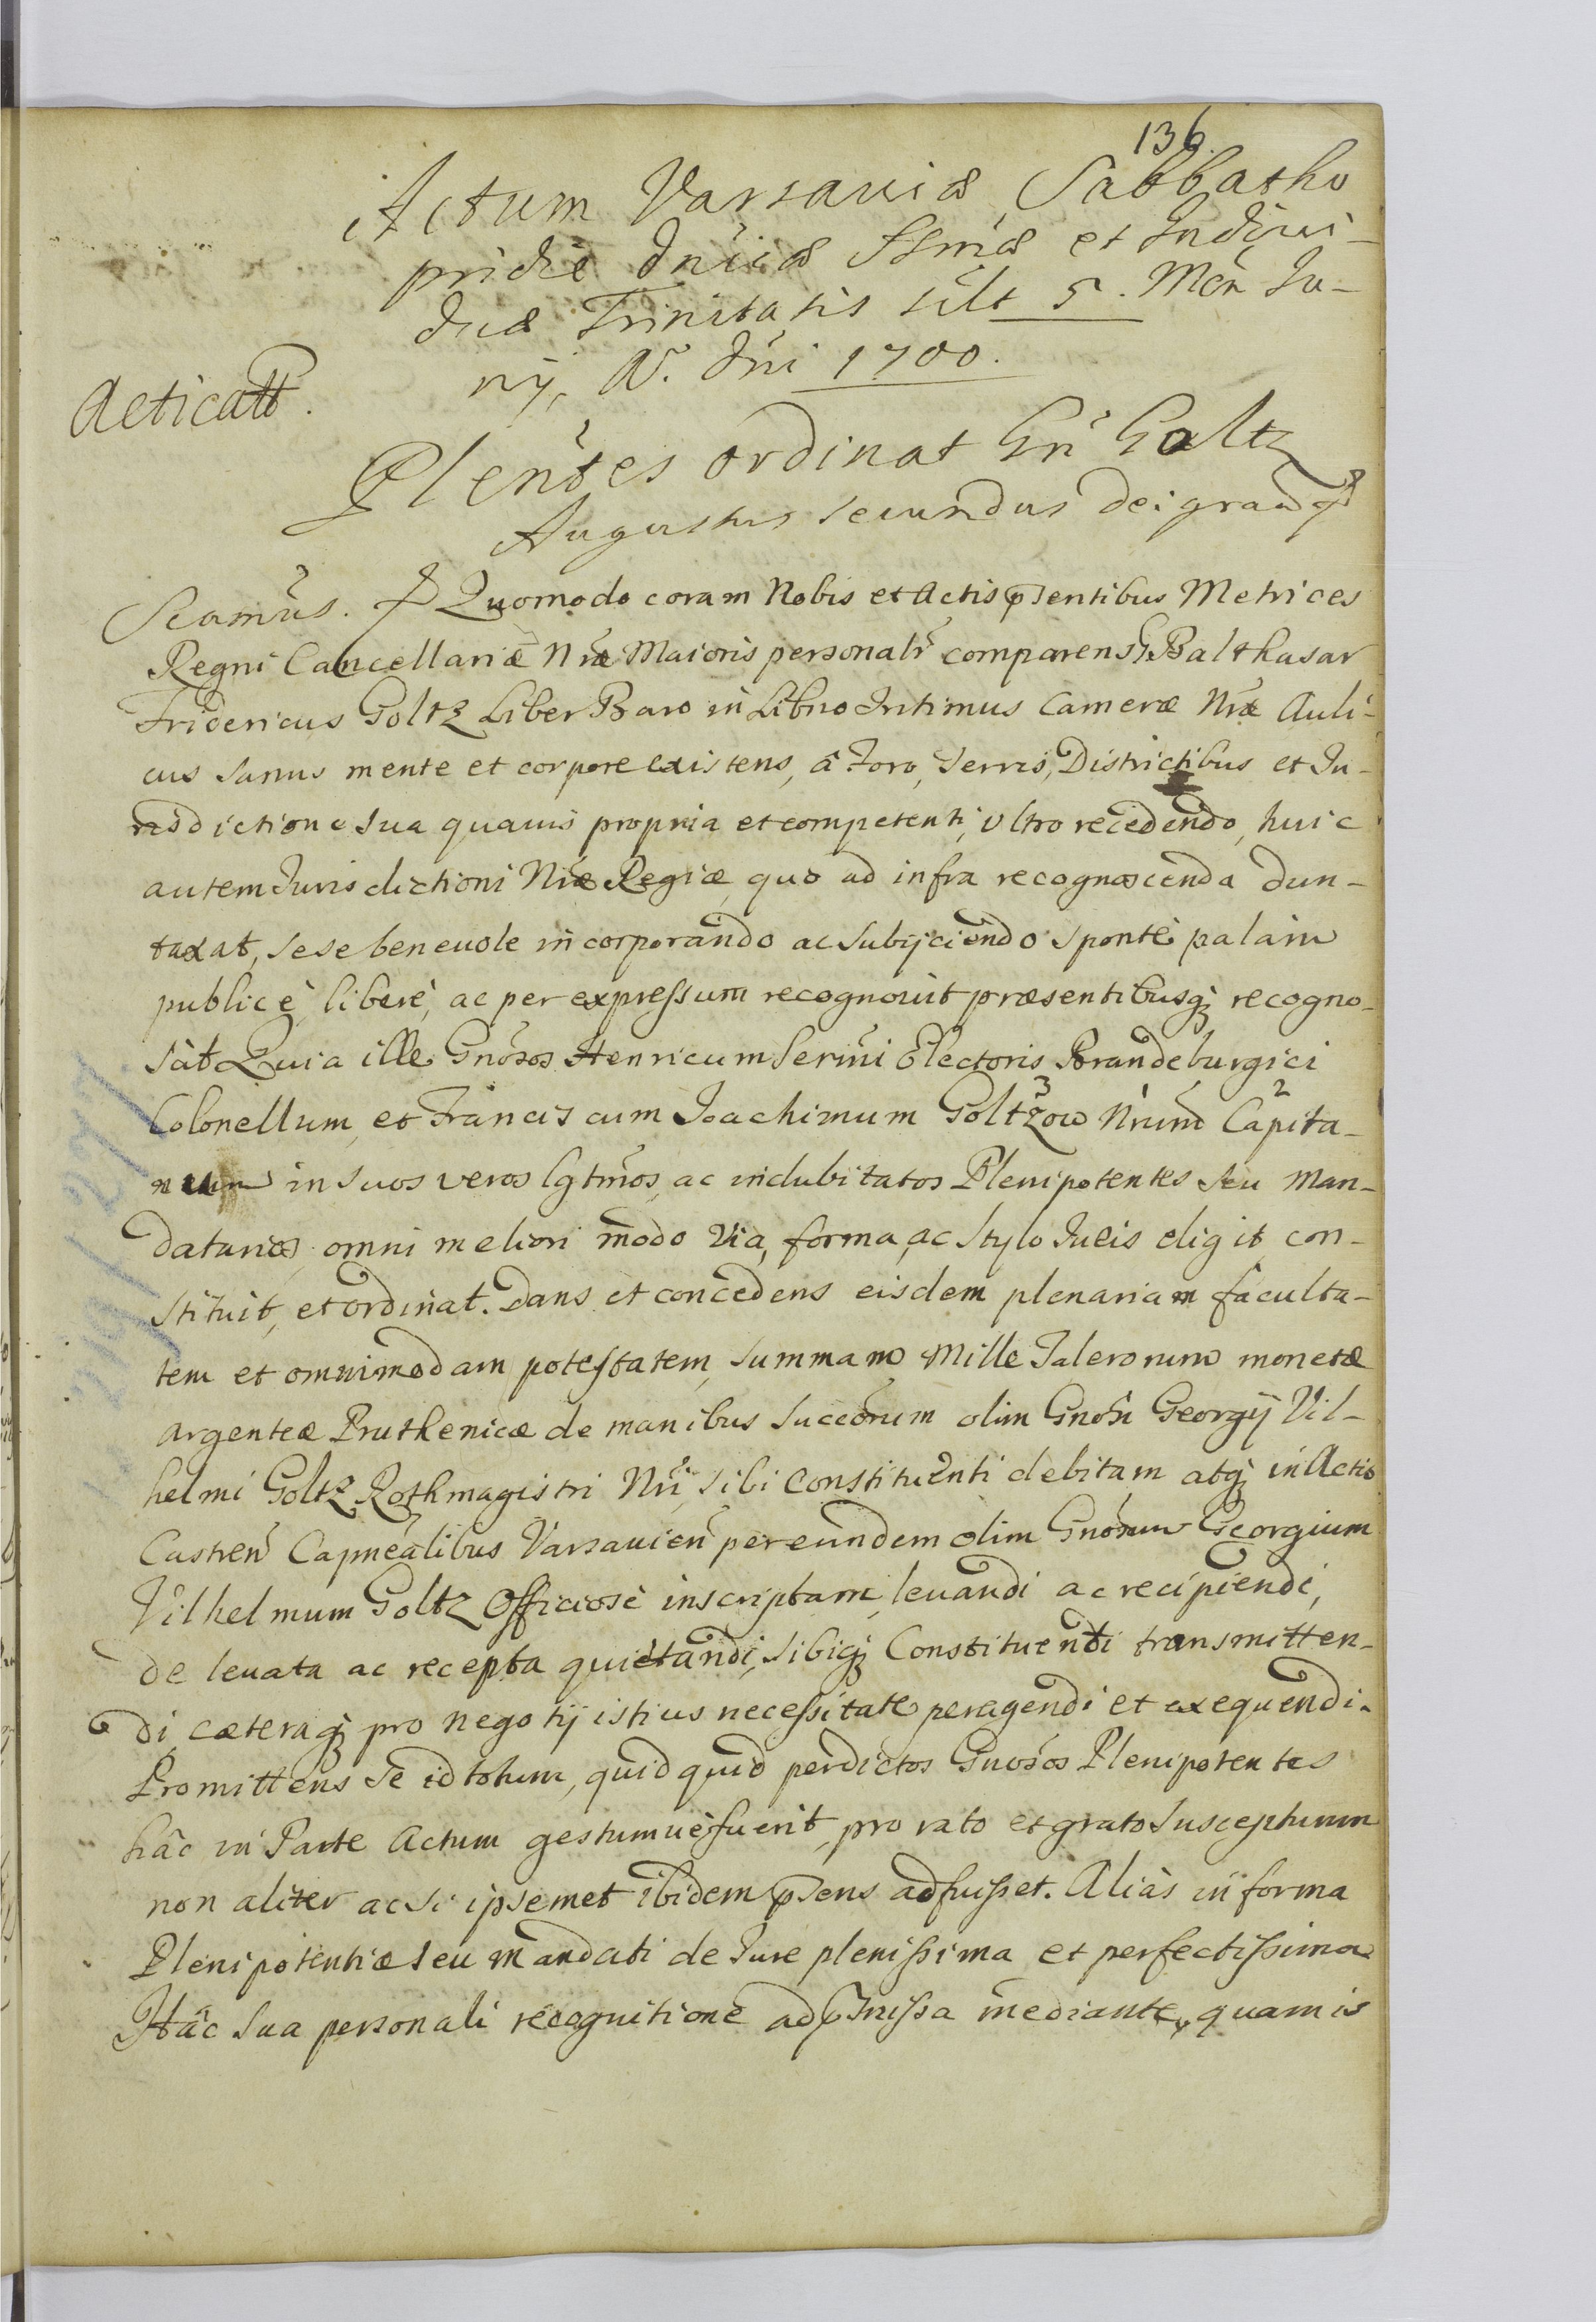 136.
Actum Varsaviæ, Sabbatho
pridie dnicæ SSmæ et Indivi-
duæ Trinitatis scilt 5. Men Ju-
nij, A. Dni 1700.
Acticatt.
Plentes ordinat Gn Goltz
Augustus secundus dei gratia
Scamus. Quomodo coram Nobis et Actis pntibus Metrices
Regni Cancellariæ Nræ Maioris personalr comparens G Balthasar
Fridericus Goltz Liber Baro in Libno Intimus Cameræ Nræ Auli-
cus sanus mente et corpore existens, â Foro, Terris, Districtibus et Ju-
risdictione sua quavis propria et competenti, ultro recedendo, huic
autem Jurisdictioni Nræ Regiæ, quo ad infra recognoscenda dun-
taxat, sese benevole incorporando ac subijciendo sponte palàm
publicè, liberè, ac per expressum recognovit præsentibusq; recogno-
scit Quia ille Gnosos Henricum Sermi Electoris Brandeburgici
Colonellum, et Franciscum Joachimum Goltzow 3 Nrum Capita- 2
neum in suos veros lgtmos, ac indubitatos Plenipotentes seu Man-
datarios, omni meliori modo via, forma, ac stylo Juris eligit con-
stituit, et ordinat. Dans et concedens eisdem plenariam faculta-
tem et omnimodam potestatem, summam Mille Talerorum monetæ
argenteæ Pruthenicæ de manibus succorum olim Gnosi Georgij Vil-
helmi Goltz Rothmagistri Nri, sibi Constituenti debitam atq; in Actis
Castren Capnealibus Varsavien per eundem olim Gnosum Georgium
Vilhelmum Goltz Officiose inscriptam, levandi ac recipiendi,
de levata ac recepta quietandi, sibiq; Constituenti transmitten-
di, cæteraq; pro negotij istius necessitate peragendi et exequendi.
Promittens se id totum, quidquid per dictos Gnosos Plenipotentes
hâc in Parte Actum gestumve fuerit, pro rato et grato suscepturum
non aliter ac si ipsemet ibidem psens adfuisset. Aliàs in forma
Plenipotentiæ seu mandati de Jure plenissima et perfectissima
Hâc sua personali recognitione ad pmissa mediante, quam is